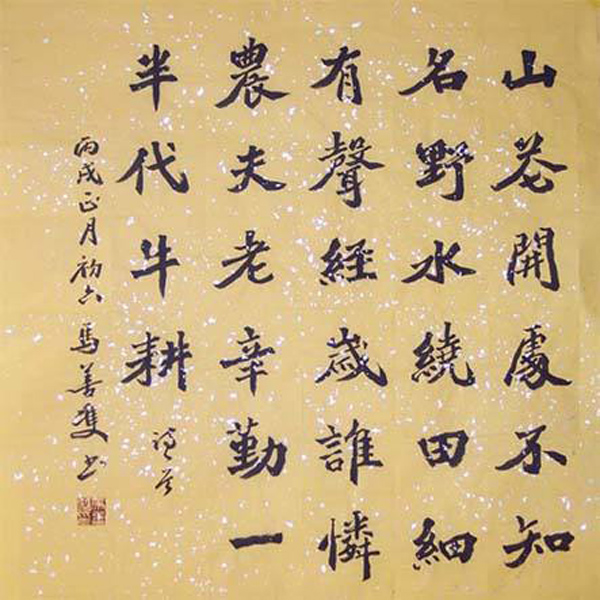 山花開處不知
名野水繞田細
有聲經歲誰憐
農夫老辛勤一
半代牛耕
丙戌正月初六馬善雙书